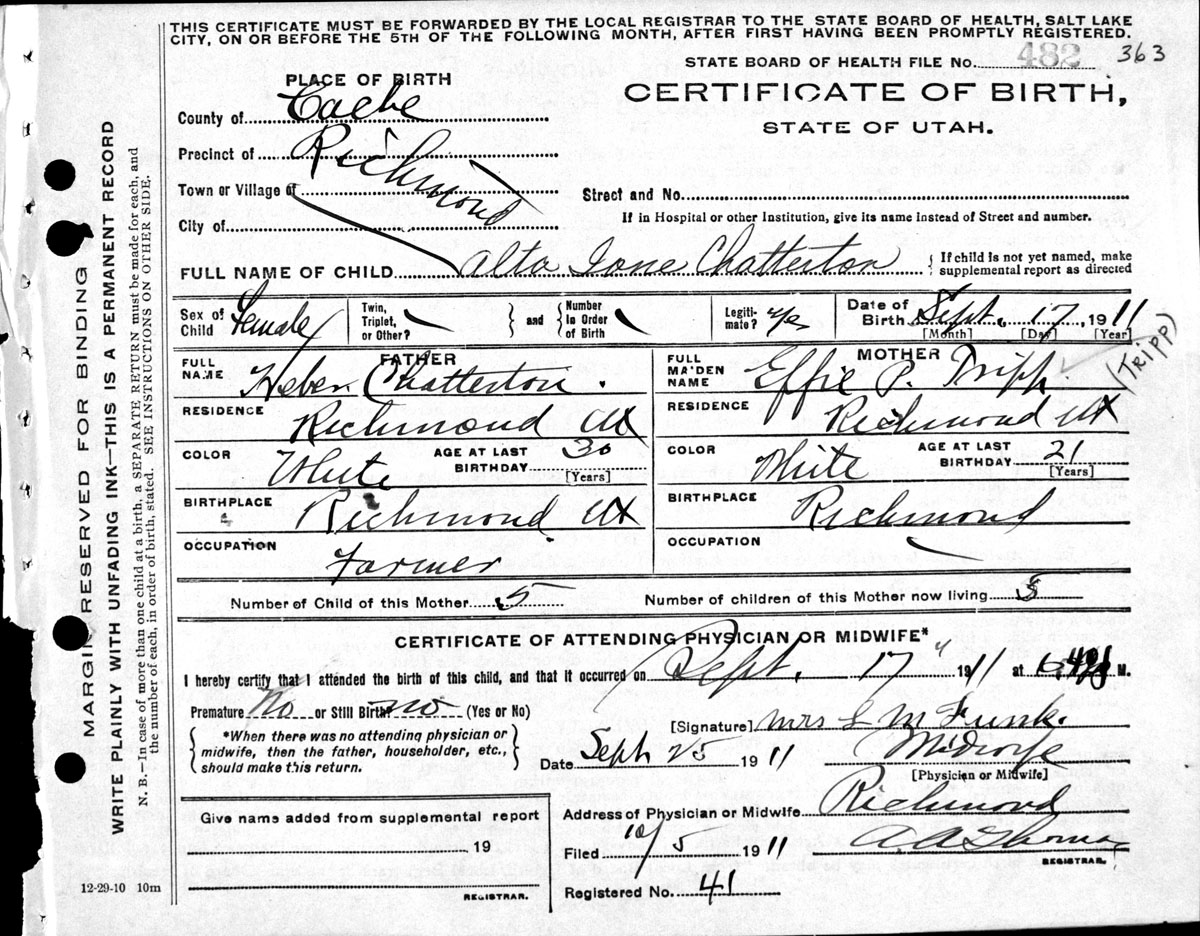 THIS CERTIFICATE MUST BE FORWARDED BY THE LOCAL REGISTRAR TO THE STATE BOARD OF HEALTH, SALT LAKE
CITY, ON OR BEFORE THE 5TH OF THE FOLLOWING MONTH, AFTER FIRST HAVING BEEN PROMPTLY REGISTERED.
STATE BOARD OF HEALTH FILE No. 482 363
PLACE OF BIRTH
CERTIFICATE OF BIRTH,
STATE OF UTAH.
County of Cache
Precinct of Richmond
Town or Village of
Street and No.
City of
If in Hospital or other Institution, give its name instead of Street and number.
FULL NAME OF CHILD Alta Ione Chatterton { If child is not yet named, make
supplemental report as directed
Sex of Child Female
Twin, Triplet, or Other?
and
Number in Order of Birth
Legitimate? Yes
Date of Birth Sept. 17, 1911
[Month] [Day] [Year]
FATHER
FULL NAME Heber Chatterton.
RESIDENCE Richmond Ut
COLOR White AGE AT LAST BIRTHDAY 30
[Years]
BIRTHPLACE Richmond Ut
OCCUPATION Farmer
MOTHER
FULL MAIDEN NAME Effie P. Tripp. (TRIPP)
RESIDENCE Richmond Ut
COLOR White AGE AT LAST BIRTHDAY 21
[Years]
BIRTHPLACE Richmond
OCCUPATION
Number of Child of this Mother 5 Number of children of this Mother now living
CERTIFICATE OF ATTENDING PHYSICIAN OR MIDWIFE*
I hereby certify that I attended the birth of this child, and that it occurred on Sept. 17 1911 at M.
Premature No or Still Birth no (Yes or No)
*When there was no attending physician or
midwife, then the father, householder, etc.,
should make this return.
[Signature] Mrs L M Funk.
Date Sept 25 1911 Midwife
[Physician or Midwife]
Give name added from supplemental report
19
REGISTRAR.
Address of Physician or Midwife Richmond
Filed 10/5 1911 A A Thomas
REGISTRAR.
Registered No. 41
12-29-10 10m
MARGIN RESERVED FOR BINDING
WRITE PLAINLY WITH UNFADING INK—THIS IS A PERMANENT RECORD
N. B.—In case of more than one child at a birth, a SEPARATE RETURN must be made for each, and
the number of each, in order of birth, stated. SEE INSTRUCTIONS ON OTHER SIDE.